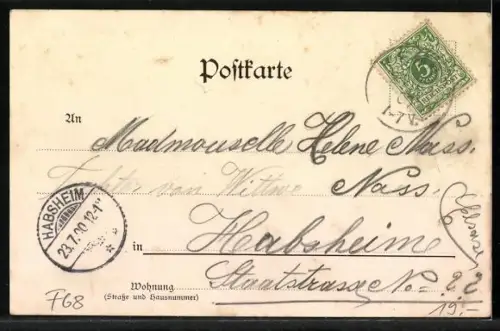 Postkarte
5
1-7 V.
An Madmouselle Helene Nass.
Tochter von Wittwe Nass.
HABSHEIM
23.7.00.12-1
in Habsheim
Elsass
Wohnung
(Straße und Hausnummer)
Staatstrasse No = 22
F68
19.-